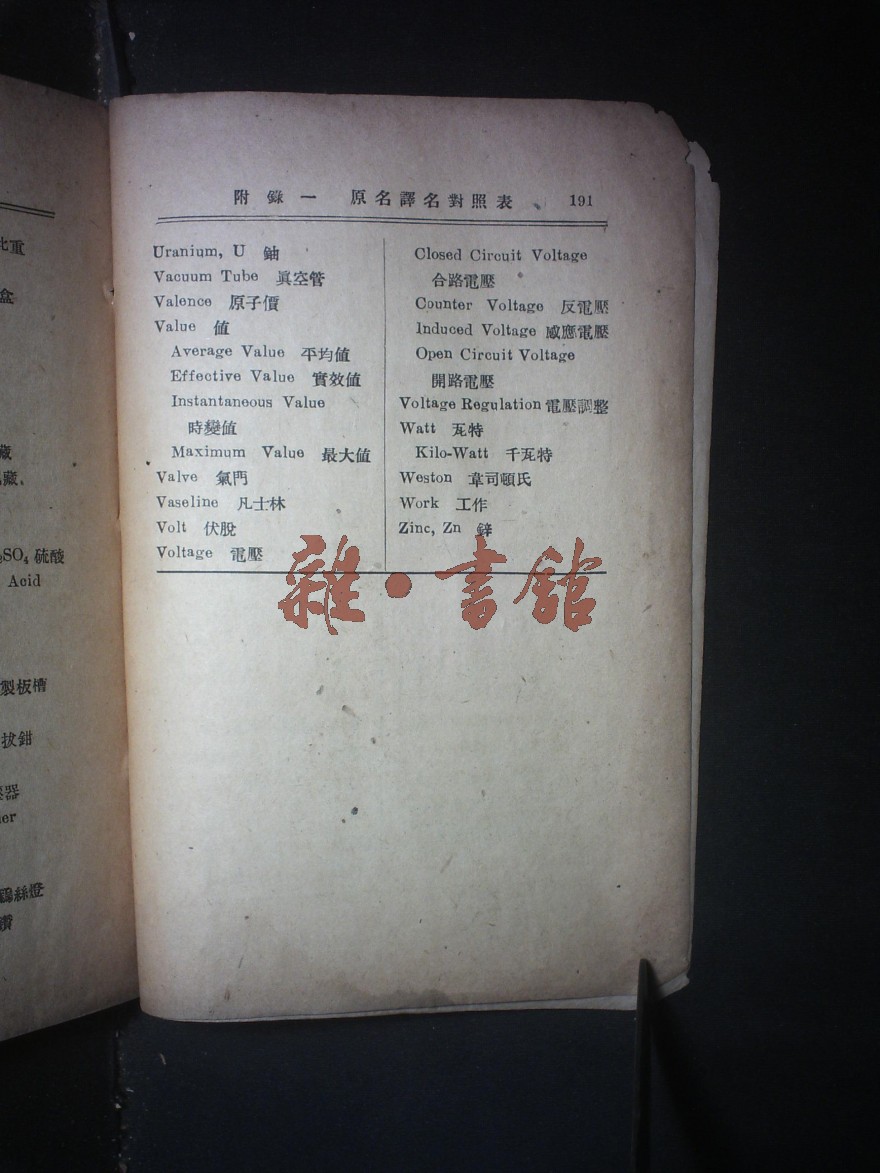 比重
盒
藏
藏、
SO₄ 硫酸
Acid
製板槽
拔鉗
器
er
絲燈
鑽
附 錄 一 原名譯名對照表 191
Uranium, U 鈾
Vacuum Tube 眞空管
Valence 原子價
Value 値
Average Value 平均値
Effective Value 實效値
Instantaneous Value
時變値
Maximum Value 最大値
Valve 氣門
Vaseline 凡士林
Volt 伏脫
Voltage 電壓
Closed Circuit Voltage
合路電壓
Counter Voltage 反電壓
Induced Voltage 感應電壓
Open Circuit Voltage
開路電壓
Voltage Regulation 電壓調整
Watt 瓦特
Kilo-Watt 千瓦特
Weston 韋司頓氏
Work 工作
Zinc, Zn 鋅
雜·書館